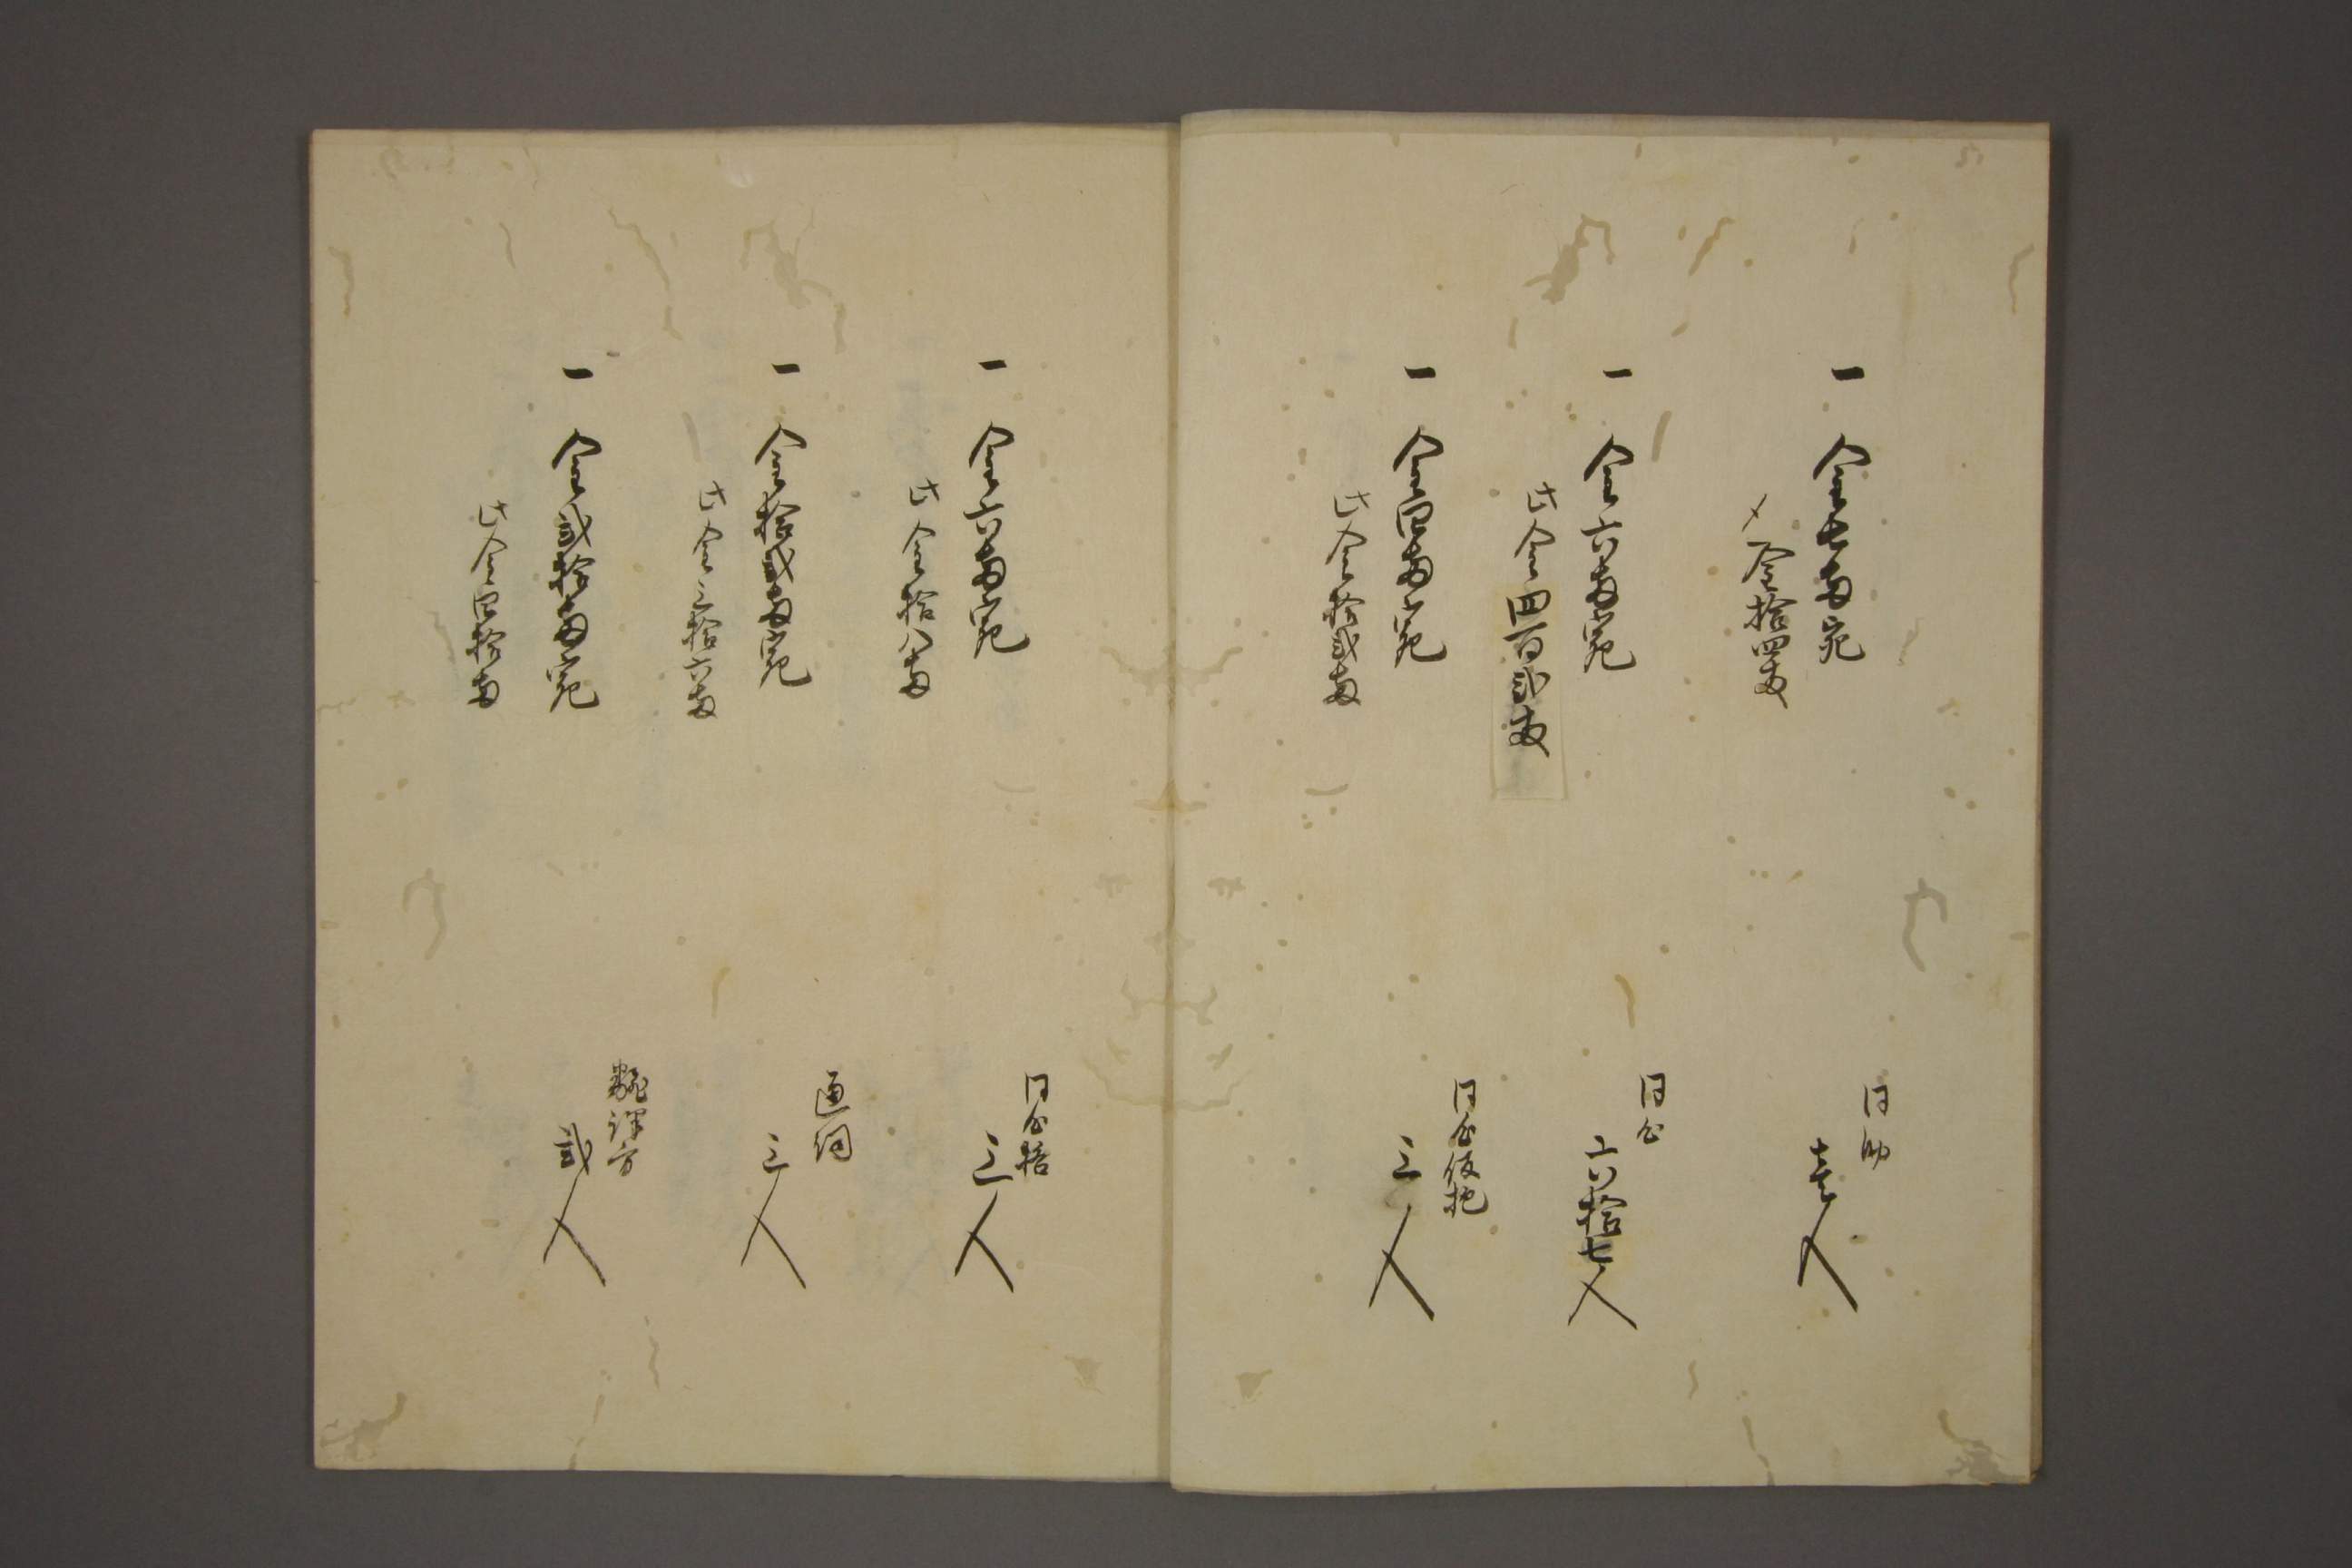 一 金七両宛
〆金拾四両
同助
壱人
一 金六両宛
此金四百弐両
同心
六拾七人
一 金四両宛
此金拾弐両
同心仮抱
三人
一 金六両宛
此金拾八両
同心格
三人
一 金拾弐両宛
此金三拾六両
通詞
三人
一 金弐拾両宛
此金四拾両
飜譯方
弐人